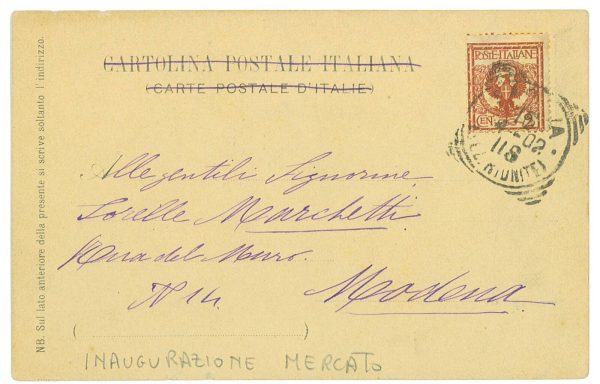 CARTOLINA POSTALE ITALIANA
(CARTE POSTALE D'ITALIE)
POSTE ITALIANE
CEN
12
02
11 S
RIUNITE)
Alle gentili Signorine
Sorelle Marchetti
del Muro.
N 14.
Modena
INAUGURAZIONE MERCATO
NB. Sul lato anteriore della presente si scrive soltanto l'indirizzo.